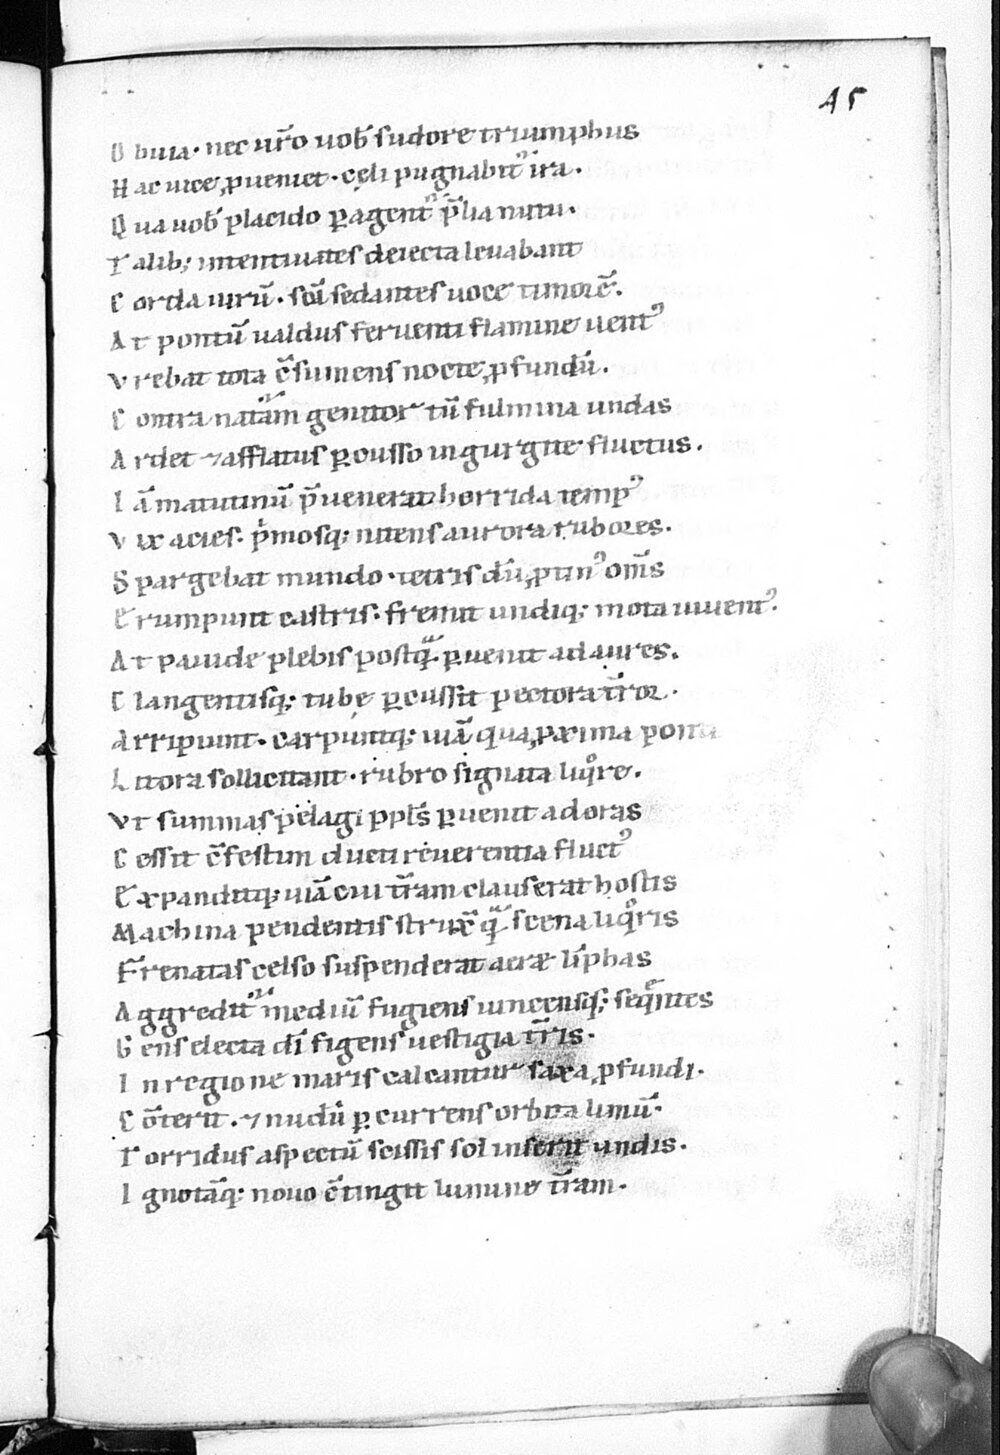 45
Obuia · nec ur̄o uob̄ sudore triumphus
Hac uice ꝓueniet · cęli pugnabit᷑ ira ·
Qua uob̄ placido ꝑagent᷑ p̄lia nutu ·
Talib; intentiuates deiecta leuabant
Corda uirū · soū sedantes uoce timorē ·
At pontū ualdus feruenti flamine uentꝰ
Vrebat tota c̄sumens nocte ꝓfundū ·
Contra natā genitor tū fulmina undas
Ardet ⁊ afflatus ꝑcusso in gurgite fluctus ·
Iā matutinū p̄uenerat horrida tempꝰ
Vix acies · pͥmosq; nitens aurora rubores ·
Spargebat mundo · tetris dū ꝓtinꝰ om̄s
Erumpunt castris · fremit undiq; mota iuuentꝰ ·
At pauide plebis postqᷓ ꝑuenit ad aures ·
Clangentisq; tubę ꝑcussit pectora t̄ror ·
Arripiunt · carpuntq; uiā qua ꝓxima ponti
Litora sollicitant · rubro signata liqͦre ·
Vt summas pelagi ppl̄s ꝑuenit ad oras
Cessit c̄festim ducti reuerentia fluctꝰ
Expanditq; uiā cui t̄ram clauserat hostis
Machina pendentis strux̄ qᷓ scena liqͦris
Frenatas celso suspenderat aeræ līphas
Aggredit᷑ mediū fugiens uincensq; seqͤntes
Gens electa dī figens uestigia t̄ris ·
In regione maris calcantur saxa ꝓfundi ·
Cōterit · ⁊ nudū ꝑcurrens orbita limū ·
Torridus aspectū scissis sol inserit undis ·
Ignotāq; nouo c̄tingit lumine t̄ram ·